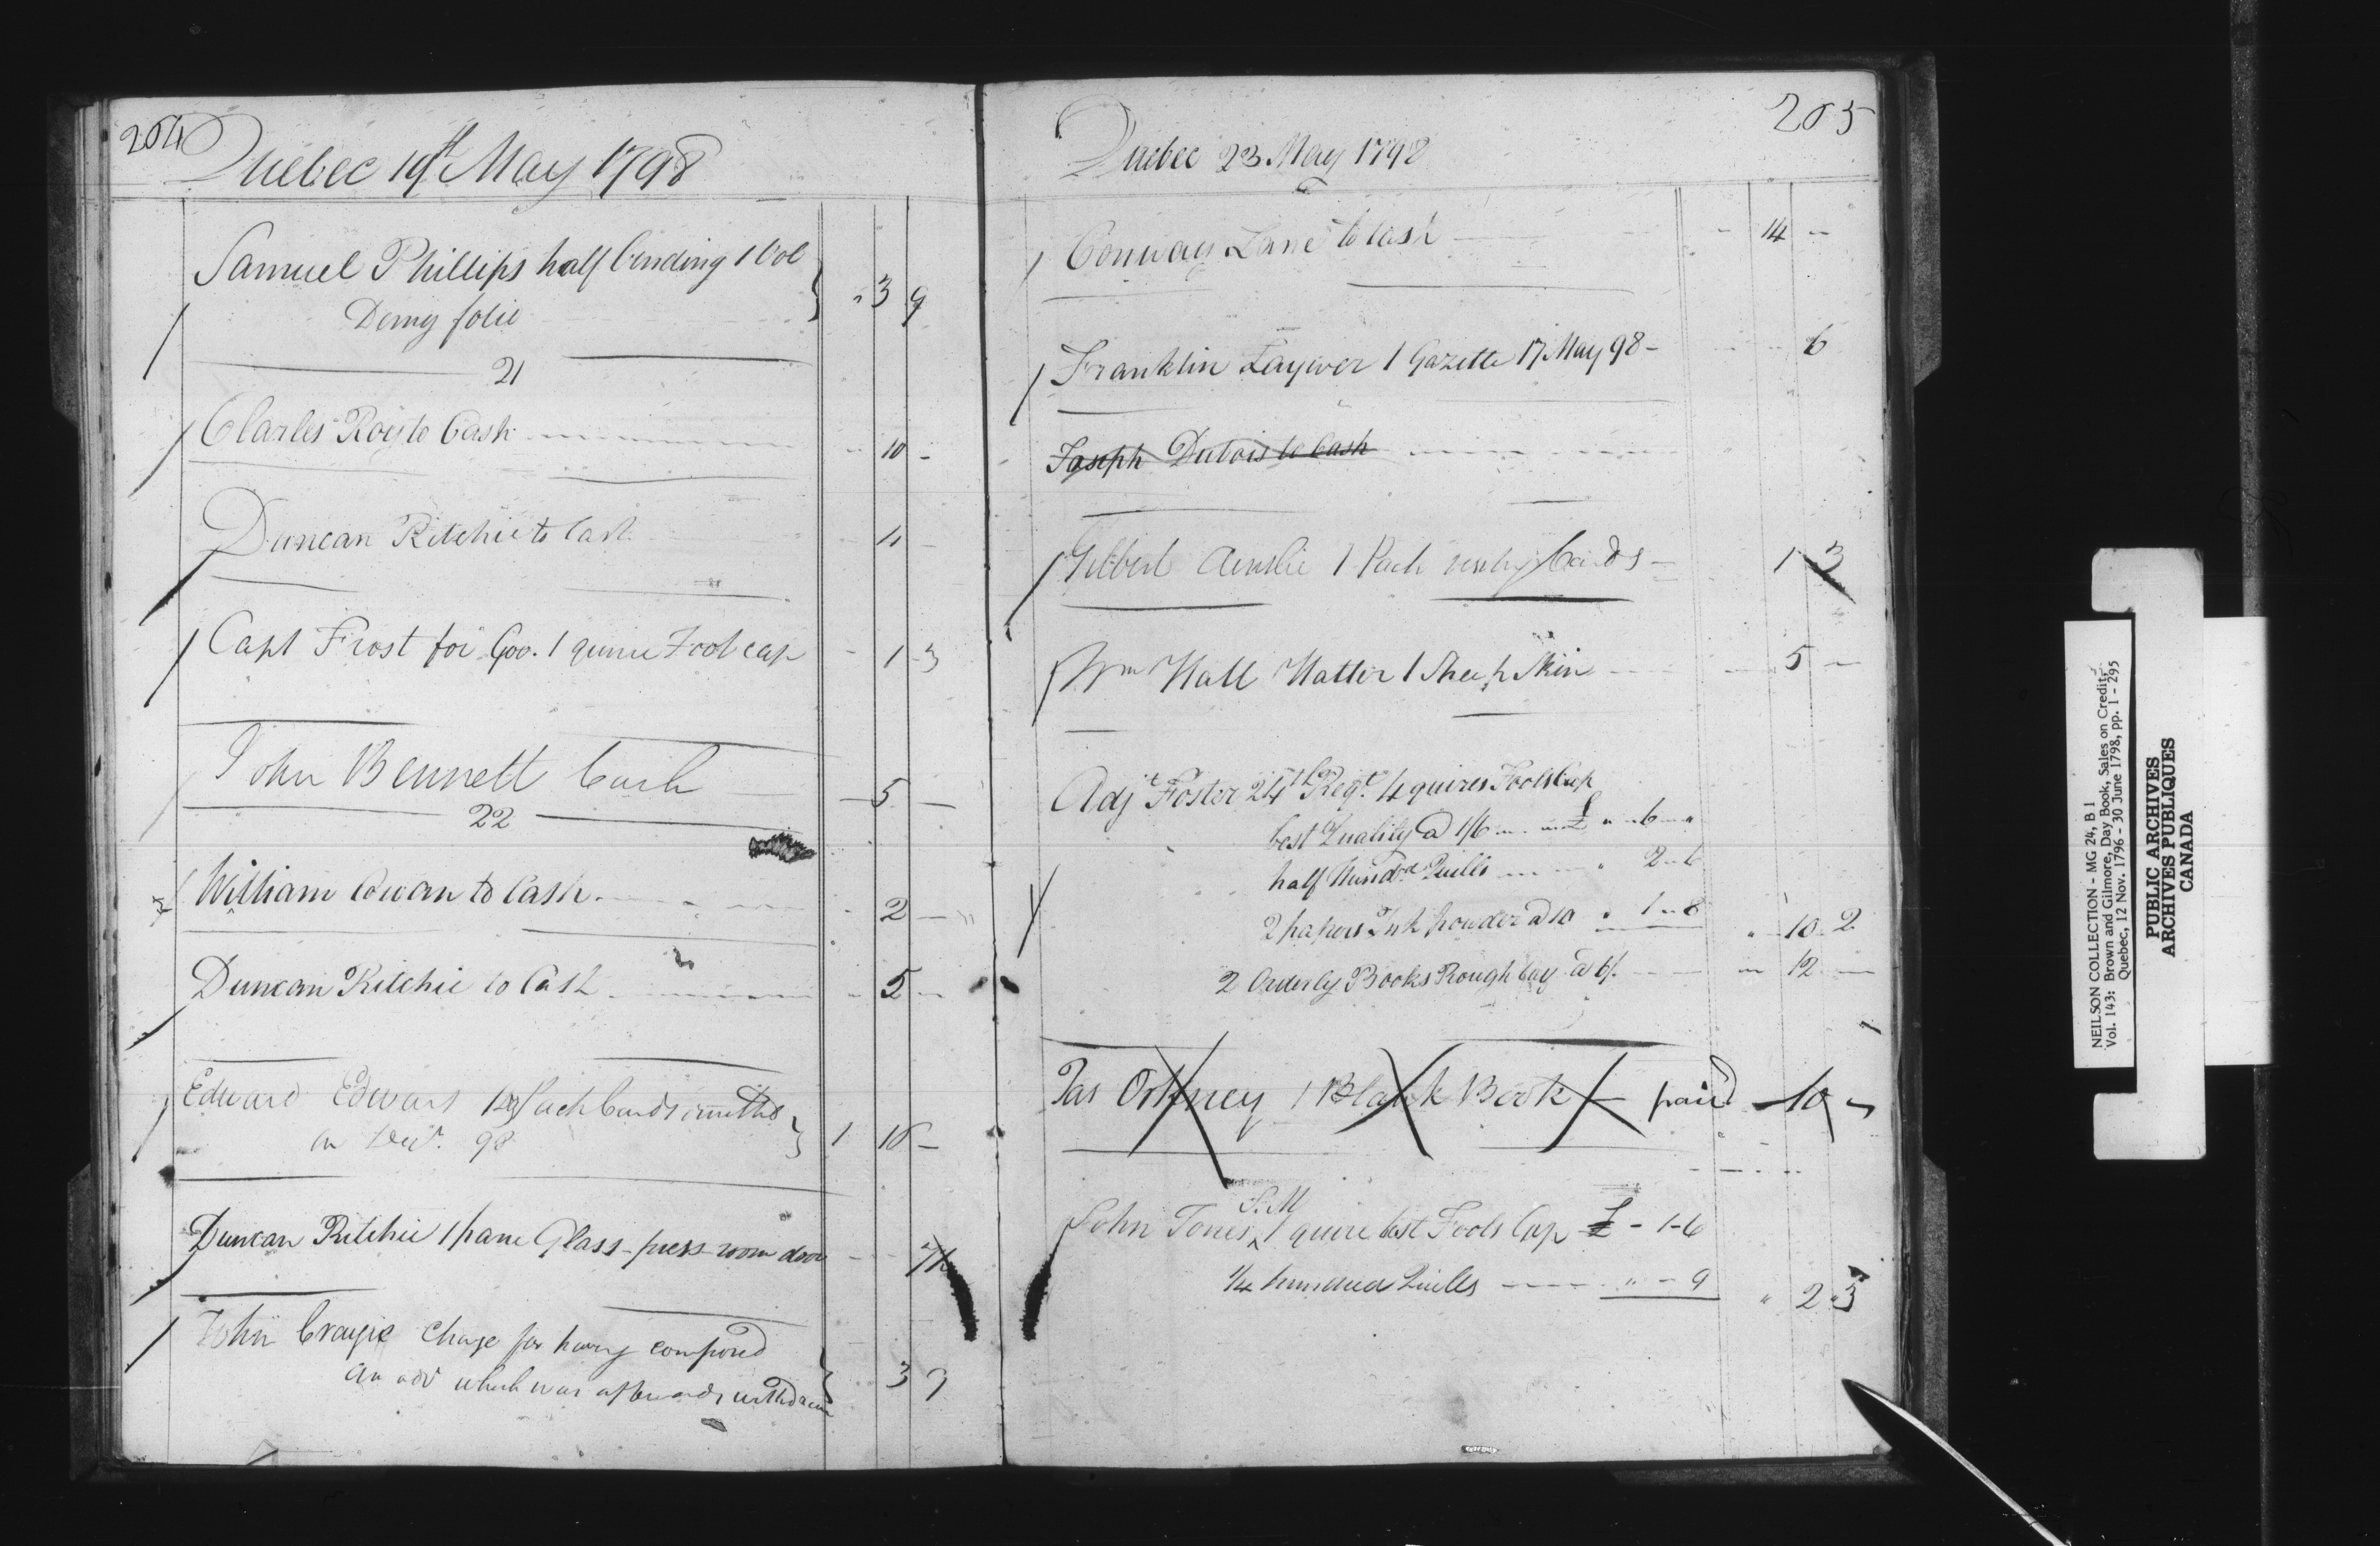 204
Quebec 19th May 1798
Samuel Phillips half binding 1 Vol
Demy folio " 3 9
21
Charles Roy to Cash - 10 -
Duncan Ritchie to Cash - 11 -
Capt Frost for Gov. 1 quire Foolcap - 1 3
John Bennett Cash - 5 -
22
William Cowan to Cash - 2 -
Duncan Ritchie to Cash - 5 -
Edward Edwars Pack Cards omitted
in Decr. 98 1 10 -
Duncan Ritchie 1 pane Glass - press room door - - 7½
John Craigie Charge for having composed
an adv which was afterwards withdrawn 3 9
205
Quebec 23 May 1798
Conway Lane to Cash - 14 -
Franklin Laywer 1 Gazette 17 May 98 - 6
Joseph Dubois to Cash
Gilbert Ainslie 1 Pack Cards - 1 3
Wm Hall Hatter 1 Sheep Skin - 5 -
Adjt Foster 24th Regt. 4 quires Fools Cap
best Quality @ 1/6 £ " 6 "
half Hundd Quills " 2 - 6
2 papers Ink powder @ 10 " 1 " 8 " 10 2
2 Orderly Books Rough Calf @ 6/. - 12 -
Jas Orkney 1 Blank Book - paid - 10 -
S. M
John Jones ^ 1 quire best Fools Cap £ - 1-6
1/4 hundred Quills " - 9 " 2 " 3
NEILSON COLLECTION - MG 24, B 1
Vol. 143: Brown and Gilmore, Day Book, Sales on Credit,
Quebec, 12 Nov. 1796 - 30 June 1798, pp. 1 - 295
PUBLIC ARCHIVES
ARCHIVES PUBLIQUES
CANADA